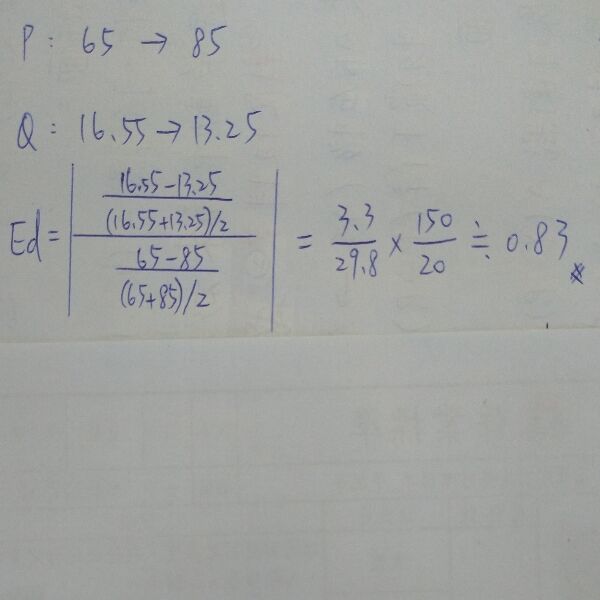 P: 65 → 85
Q: 16.55 → 13.25
Ed = | ((16.55-13.25)/((16.55+13.25)/2)) / ((65-85)/((65+85)/2)) | = 3.3/29.8 × 150/20 ≒ 0.83 ※